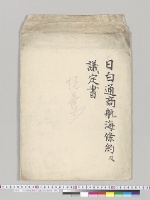 日白通商航海條約及
議定書